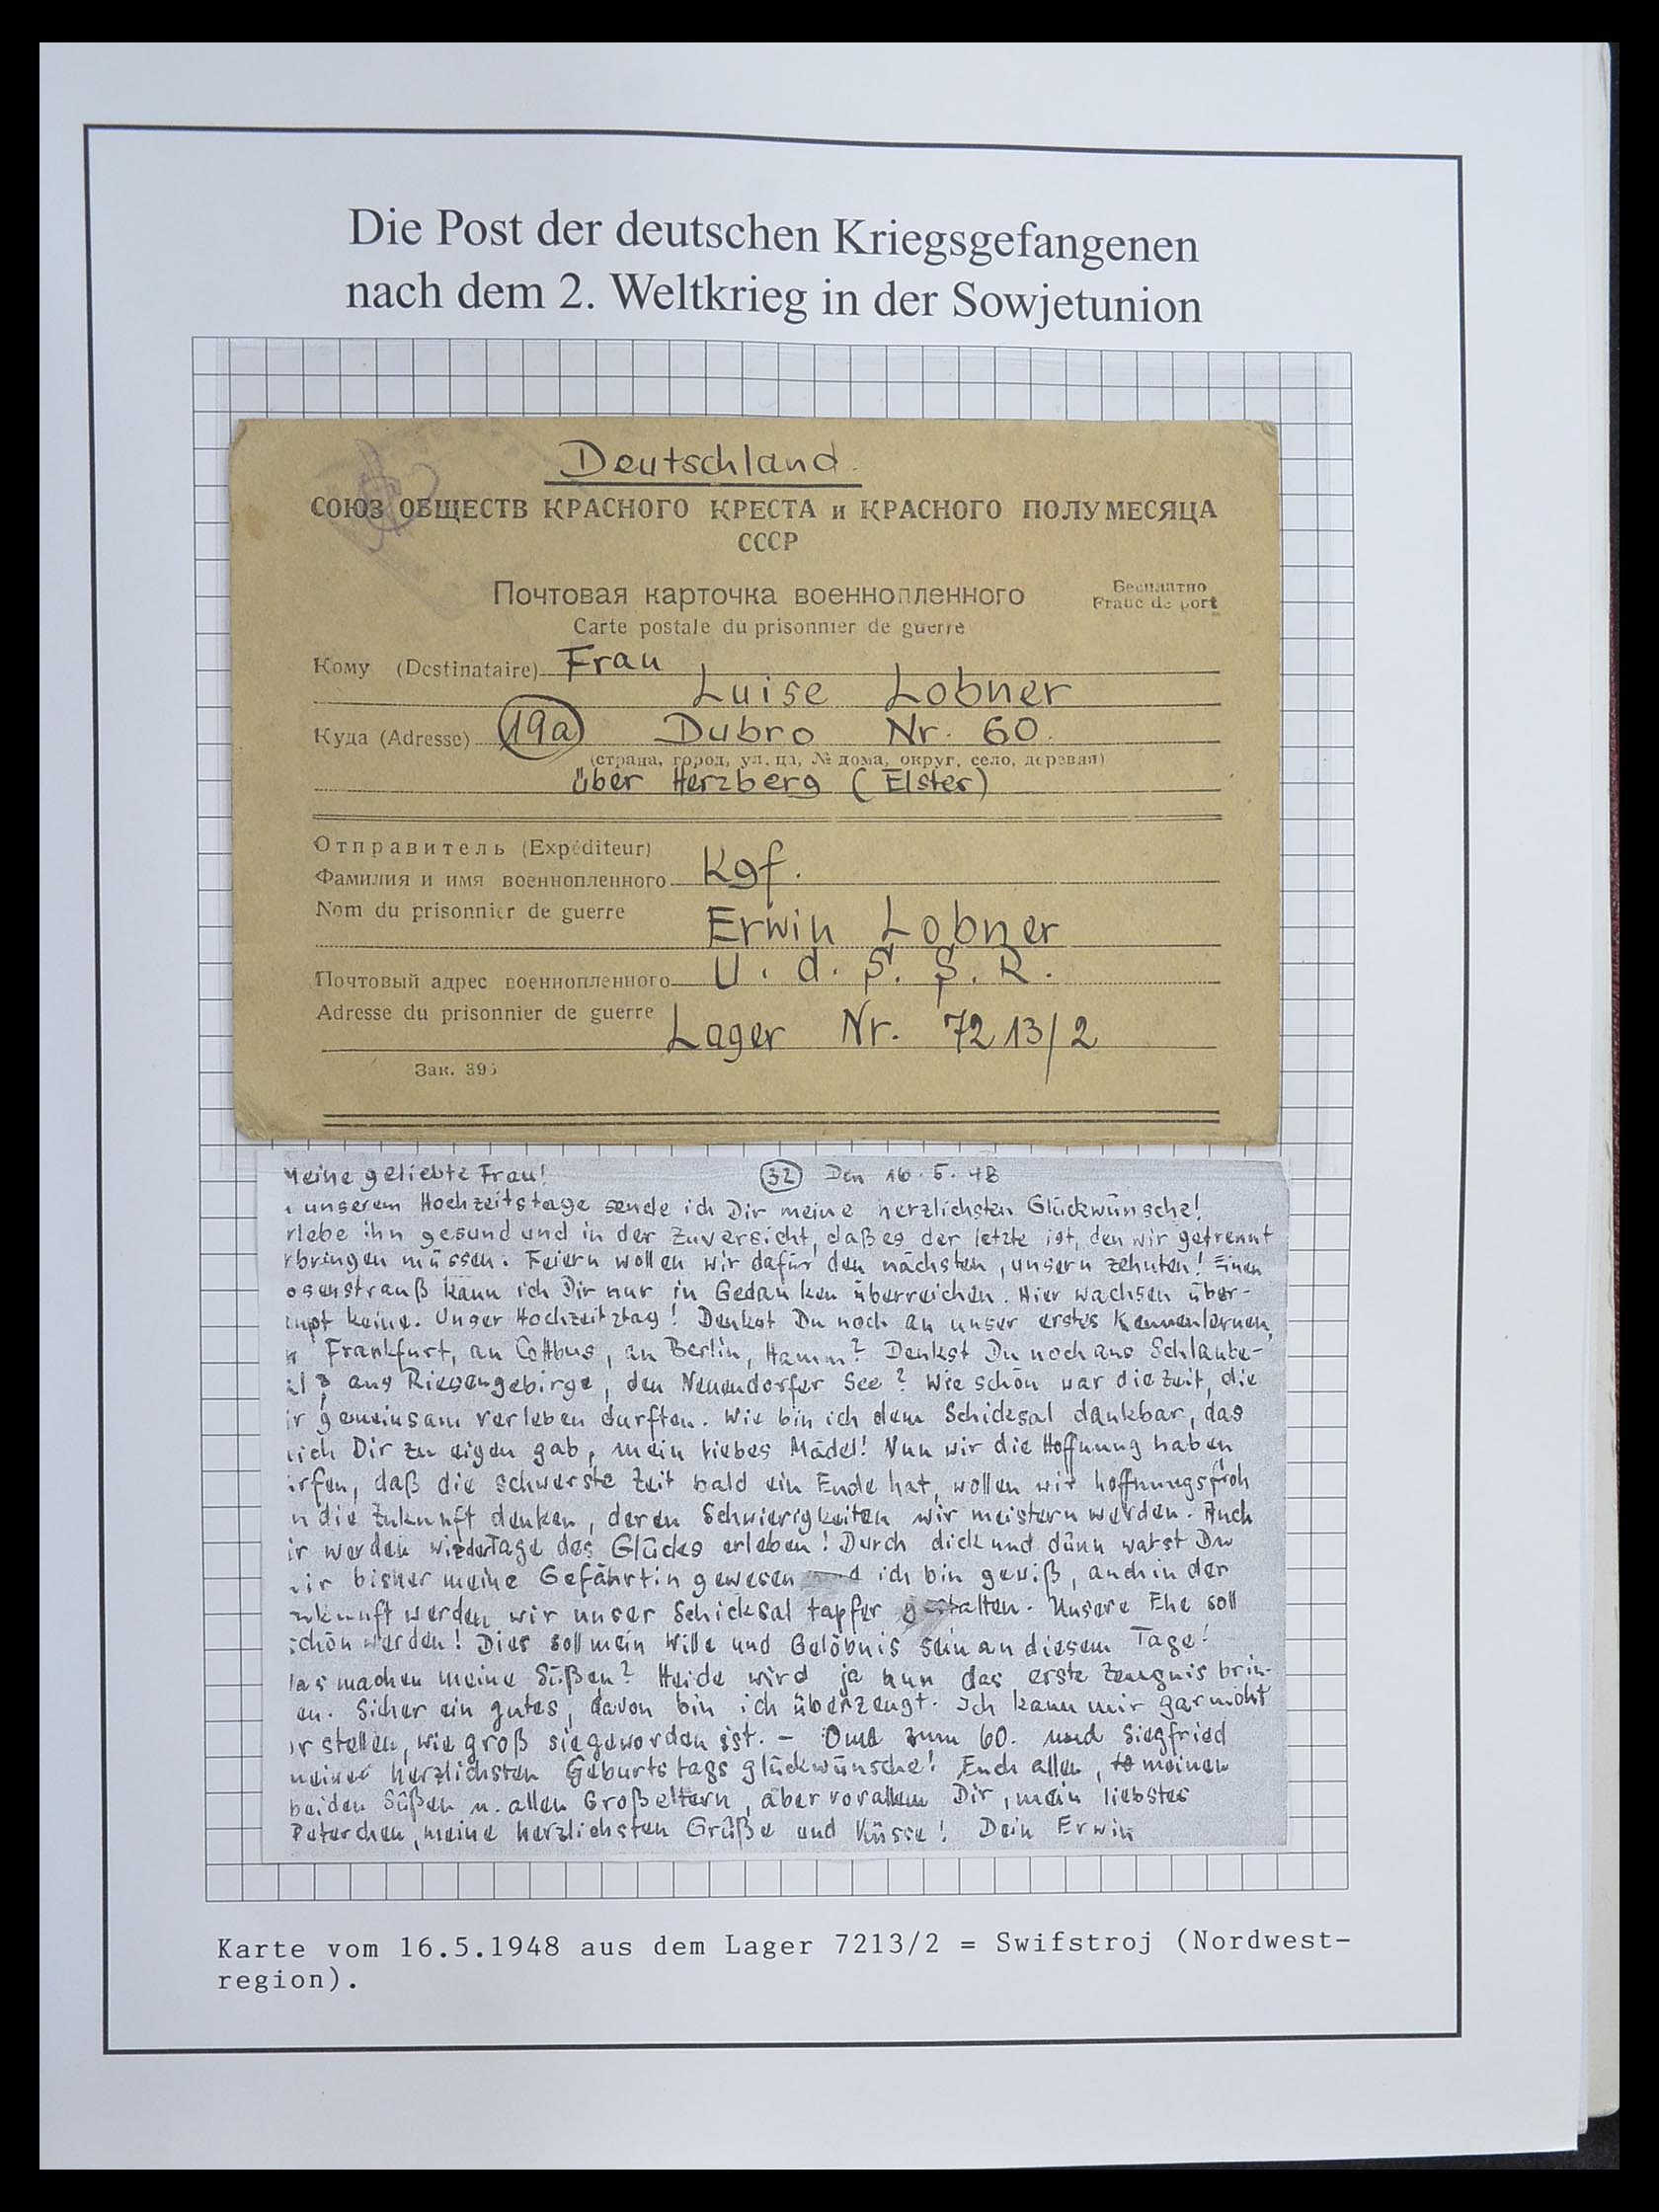 Die Post der deutschen Kriegsgefangenen
nach dem 2. Weltkrieg in der Sowjetunion
Deutschland.
СОЮЗ ОБЩЕСТВ КРАСНОГО КРЕСТА и КРАСНОГО ПОЛУМЕСЯЦА
СССР
Почтовая карточка военнопленного
Бесплатно
Carte postale du prisonnier de guerre
Franc de port
Кому (Destinataire) Frau
Luise Lobner
Куда (Adresse) 19a Dubro Nr. 60.
(страна, город, улица, № дома, округ, село, деревня)
über Herzberg (Elster)
Отправитель (Expéditeur)
Фамилия и имя военнопленного Kgf.
Nom du prisonnier de guerre
Erwin Lobner
Почтовый адрес военнопленного U. d. S. S. R.
Adresse du prisonnier de guerre Lager Nr. 7213/2
Зак. 395
Meine geliebte Frau! 32 Den 16.5.48
unserem Hochzeitstage sende ich Dir meine herzlichsten Glückwünsche!
rlebe ihn gesund und in der Zuversicht, daß es der letzte ist, den wir getrennt
rbringen müssen. Feiern wollen wir dafür den nächsten, unsern zehnten! Einen
osenstrauß kann ich Dir nur in Gedanken überreichen. Hier wachsen über-
upt keine. Unser Hochzeitztag! Denkst Du noch an unser erstes Kennenlernen,
n Frankfurt, an Cottbus, an Berlin, Hamm? Denkst Du noch ans Schlaube-
al, ans Riesengebirge, den Neuendorfer See? Wie schön war die Zeit, die
ir gemeinsam verleben durften. Wie bin ich dem Schicksal dankbar, das
ich Dir zu eigen gab, mein liebes Mädel! Nun wir die Hoffnung haben
rfen, daß die schwerste Zeit bald ein Ende hat, wollen wir hoffnungsfroh
n die Zukunft denken, deren Schwierigkeiten wir meistern werden. Auch
ir werden wieder Tage des Glücks erleben! Durch dick und dünn warst Du
ir bisher meine Gefährtin gewesen und ich bin gewiß, auch in der
ukunft werden wir unser Schicksal tapfer gestalten. Unsere Ehe soll
schön werden! Dies soll mein Wille und Gelöbnis sein an diesem Tage!
as machen meine Süßen? Heide wird ja nun das erste Zeugnis brin-
en. Sicher ein gutes, davon bin ich überzeugt. Ich kann mir gar nicht
or stellen, wie groß sie geworden ist. – Oma zum 60. und Siegfried
meine herzlichsten Geburtstagsglückwünsche! Euch allen, meinen
beiden Süßen u. allen Großeltern, aber vorallem Dir, mein liebstes
Peterchen, meine herzlichsten Grüße und Küsse! Dein Erwin
Karte vom 16.5.1948 aus dem Lager 7213/2 = Swifstroj (Nordwest-
region).